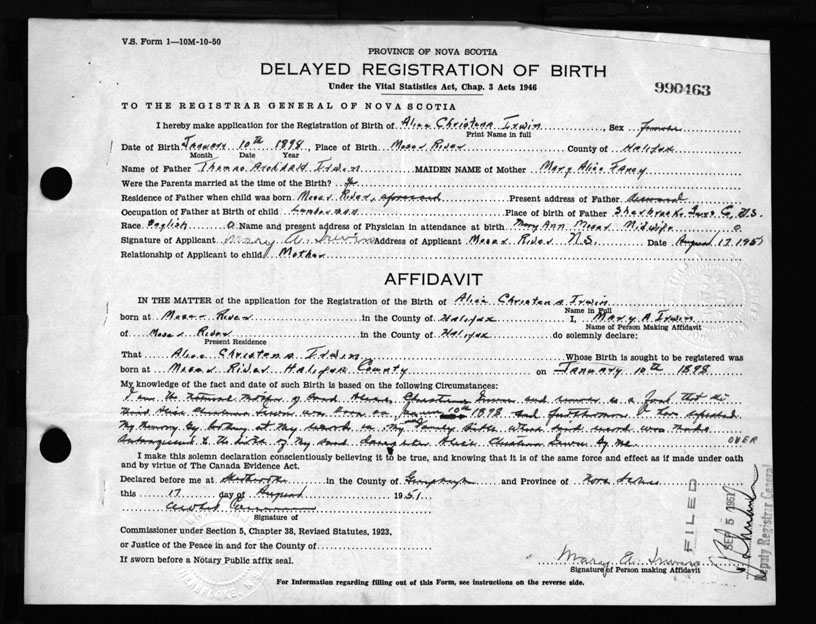 V.S. Form 1—10M-10-50
PROVINCE OF NOVA SCOTIA
DELAYED REGISTRATION OF BIRTH
990463
Under the Vital Statistics Act, Chap. 3 Acts 1946
TO THE REGISTRAR GENERAL OF NOVA SCOTIA
I hereby make application for the Registration of Birth of Alice Christena Irwin, Sex female
Print Name in full
Date of Birth January 10th 1898, Place of Birth Moser River County of Halifax
Month Date Year
Name of Father Thomas Archibald Irwin MAIDEN NAME of Mother Mary Alice Fancy
Were the Parents married at the time of the Birth? Yes
Residence of Father when child was born Moser River, Present address of Father deceased
Occupation of Father at Birth of child Lumberman Place of birth of Father Sherbrooke
Race English Name and present address of Physician in attendance at birth Mary Ann Moser Midwife
Signature of Applicant Mary A. Irwin Address of Applicant Moser River N.S. Date August 17 1951
Relationship of Applicant to child Mother
AFFIDAVIT
IN THE MATTER of the application for the Registration of the Birth of Alice Christena Irwin
Name in Full
born at Moser River in the County of Halifax I, Mary A. Irwin
Name of Person Making Affidavit
of Moser River in the County of Halifax do solemnly declare:
Present Residence
That Alice Christena Irwin Whose Birth is sought to be registered was
born at Moser River Halifax County on January 10th 1898
My knowledge of the fact and date of such Birth is based on the following Circumstances:
I am the natural Mother of Said Alice Christena Irwin and
Alice Christena Irwin was born on 10th 1898 and furthermore I have refreshed
My Memory by looking at the record in My Family Bible which said record was made
Subsequent to the birth of My said daughter Alice Christena Irwin by Me. OVER
I make this solemn declaration conscientiously believing it to be true, and knowing that it is of the same force and effect as if made under oath
and by virtue of The Canada Evidence Act.
Declared before me at in the County of and Province of Nova Scotia
this 17 day of August 1951
Signature of
Commissioner under Section 5, Chapter 38, Revised Statutes, 1923,
or Justice of the Peace in and for the County of
If sworn before a Notary Public affix seal.
Mary A. Irwin
Signature of Person making Affidavit
For Information regarding filling out of this Form, see instructions on the reverse side.
FILED
SEP 5 1951
Deputy Registrar General